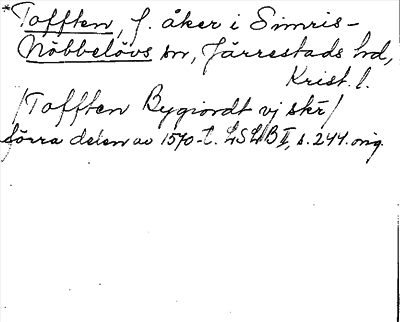 *Tofften, f. åker i Simris-
Nöbbelövs sn, Järrestads hd,
Krist. l.
/Tofften Bygiordt vj skr/
förra delen av 1570-t. LSLB II, s. 244. orig.